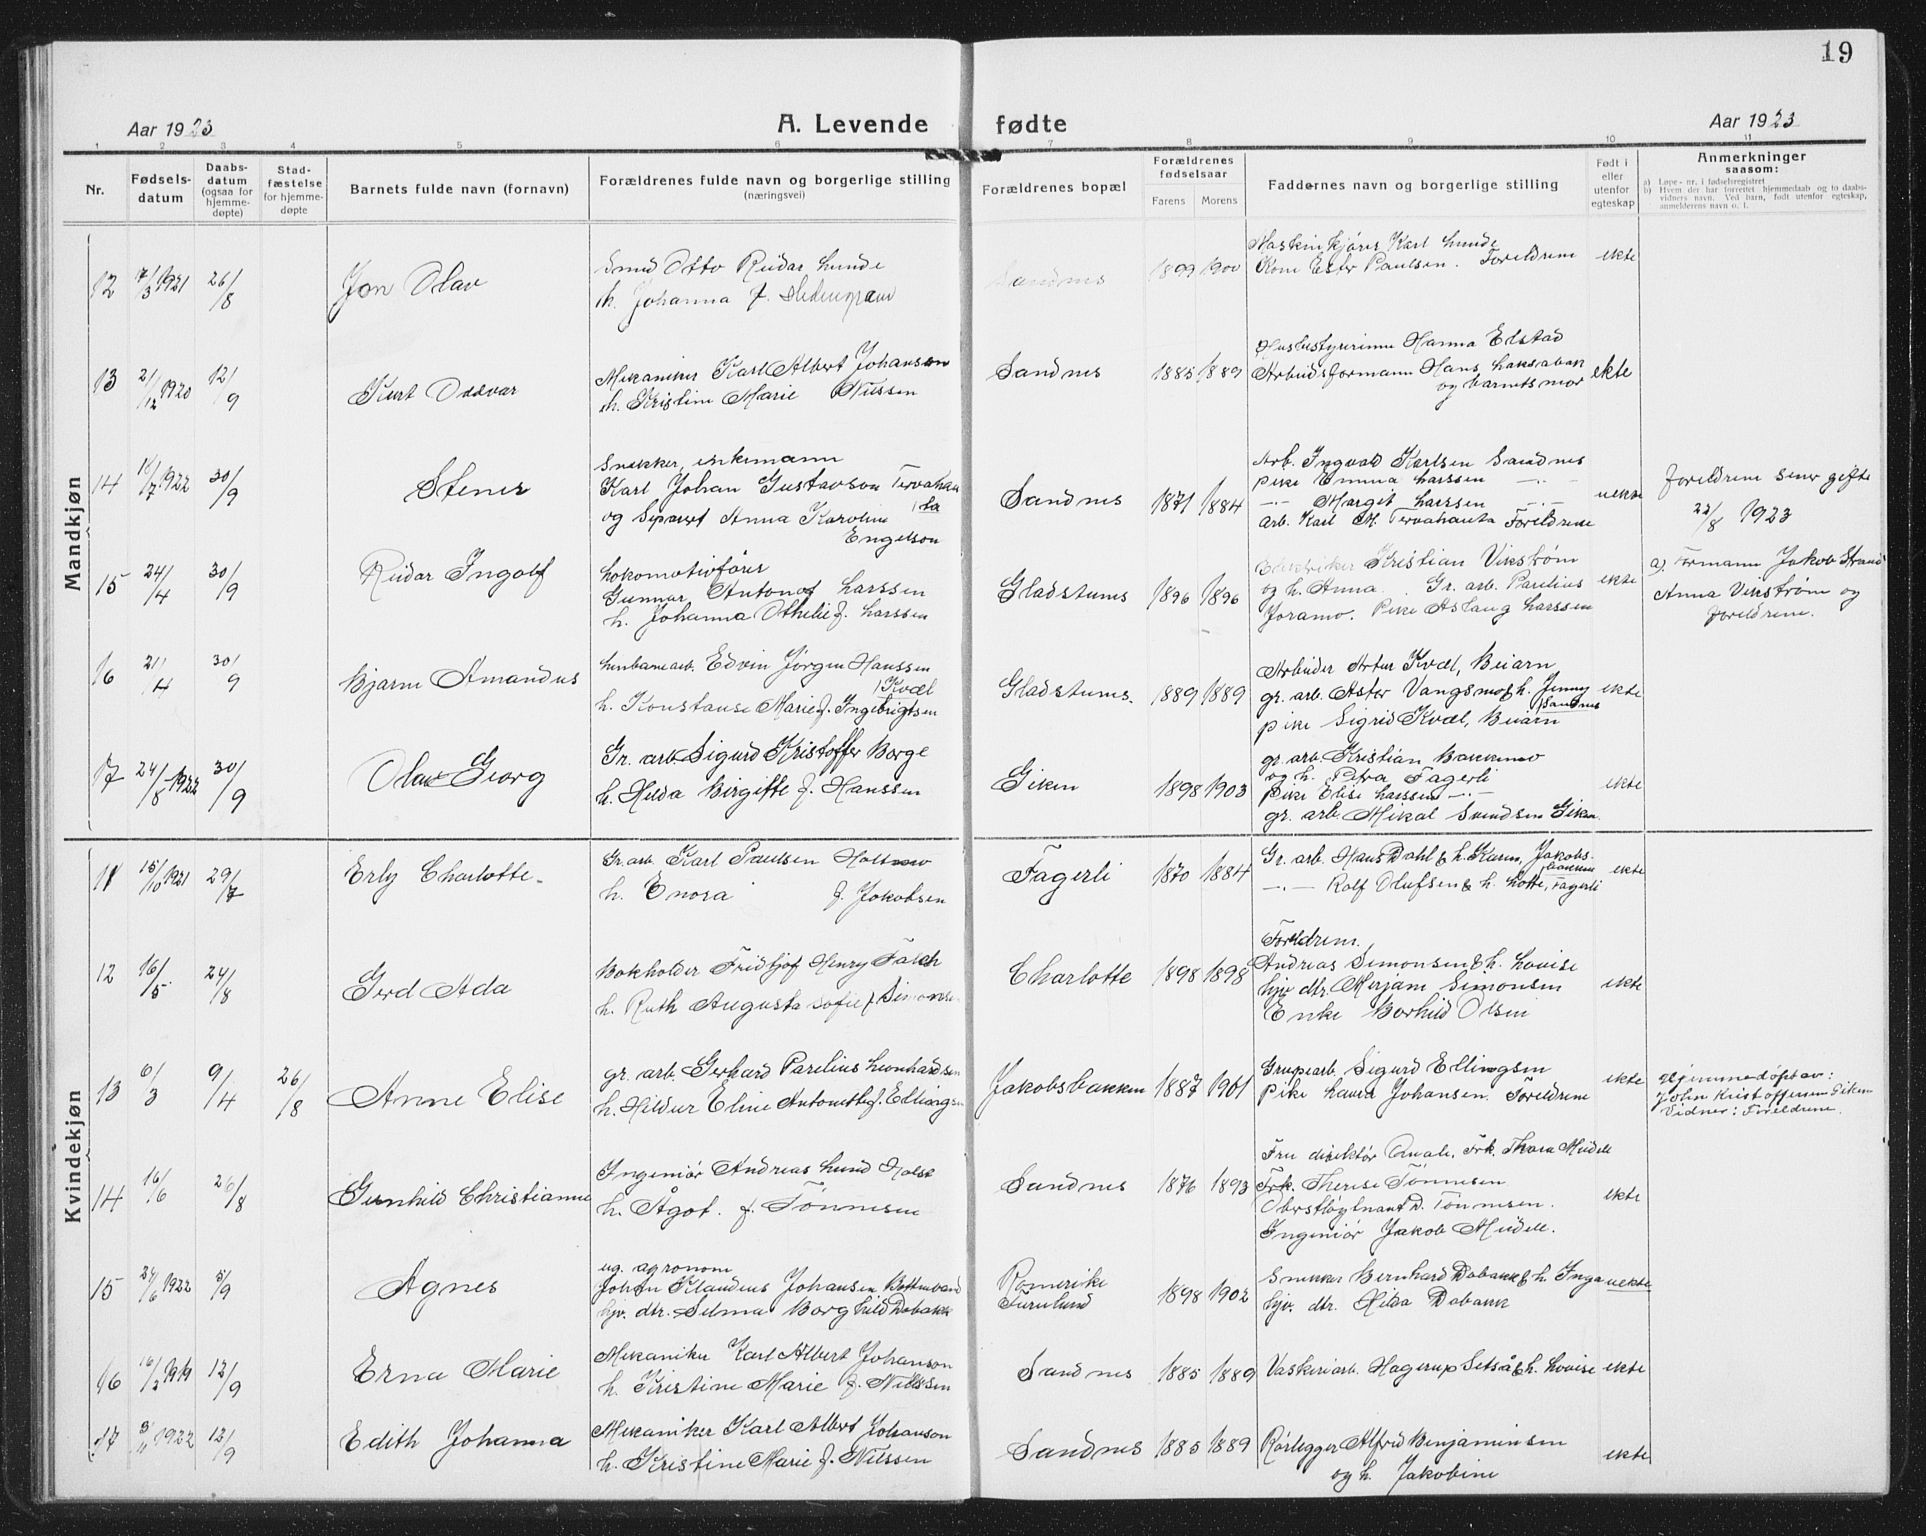 19
Aar 1923
A. Levende fødte
Aar 1923
1 2 3 4 5 6 7 8 9 10 11
Nr.
Fødsels-
datum
Daabs-
datum
(ogsaa for
hjemme-
døpte)
Stad-
fæstelse
for hjemme-
døpte
Barnets fulde navn (fornavn)
Forældrenes fulde navn og borgerlige stilling
(næringsvei)
Forældrenes bopæl
Forældrenes
fødselsaar
Farens Morens
Faddernes navn og borgerlige stilling
Født i
eller
utenfor
egteskap
Anmerkninger
saasom:
a) Løpe-nr. i fødselsregistret
b) Hvem der har forrettet hjemmedaab og to daabs-
vidners navn. Ved barn, født utenfor egteskap,
anmelderens navn o. l.
Mandkjøn
12 7/3 1921 26/8 Jon Olav
Smed Otto Reidar Lunde
h. Johanna f.
Sandnes 1899 1900
Maskinkjører Karl Lunde
Kone Ester Paulsen. Foreldrene
ekte
13 21/12 1920 12/9 Kurt Oddvar
Mekaniker Karl Albert Johanson
h. Kristine Marie Nilssen
Sandnes 1885 1889
Husbestyrerinne Hanna Elstad
Arbeidsformann Hans Laksabak
og barnets mor
ekte
14 18/7 1922 30/9 Stener
Snekker, enkemann
Karl Johan Gustavson Tervahau
ta
og Separert Anna Karoline
Engelson
Sandnes 1871 1884
Arb. Ingvald Karlsen Sandnes
Pike Emma Larssen -"-
-"- Margit Larssen -"-
arb. Karl M. Tervahauta Foreldrene
uekte
Foreldrene senr gifte
22/8 1923
15 24/4 30/9 Reidar Ingolf
Lokomotivfører
Gunnar Antonof Larssen
h. Johanna Othilie f. Larssen
Gladstunes 1896 1896
Elektriker Kristian Vikstrøm
og h. Anna. Gr. arb. Parelius
Joramo. Pike Aslaug Larssen
ekte
a) Formann Jakob Strand
Anna Vikstrøm og
foreldrene.
16 21/4 30/9 Bjarne Amandus
Linbanearb. Edvin Jørgen Hanssen
Kvæl
h. Konstanse Marie f. Ingebrigtsen
Gladstunes. 1889 1889
Arbeider Artur Kvæl, Beiarn
gr. arb. Aster Vangsmo & h. Jenny
Sandnes
pike Sigrid Kvæl, Beiarn
ekte
17 24/8 1922 30/9 Olav Georg
Gr. arb. Sigurd Kristoffer Borge
h. Hilda Birgitte f. Hanssen
Giken 1898 1903
gr. arb. Kristian Bakkemo
og h. Petra Fagerli
pike Elise Larssen -"-
gr. arb. Mikal Svendsen Giken.
ekte
Kvindekjøn
11 15/10 1921 29/7 Erly Charlotte
Gr. arb. Karl Paulsen Holtmo
h. Enora f. Jakobsen
Fagerli 1870 1884
Gr. arb. Hans Dahl & h. Karen, Jakobs-
bakken
-"- Rolf Olufsen & h. Lotte, Fagerli
ekte
12 16/5. 24/8 Gerd Ada
Bokholder Fridtjof Henry Falch
h. Ruth Augusta Sofie f. Simonse
Charlotte 1898 1898
Foreldrene.
Andreas Simonsen & h. Lovise
hjv dtr. Mirjam Simonsen
Enke Borhild Olsen
ekte
13 6/3 9/4 26/8 Anne Elise
gr. arb. Gerhard Parelius Leonhardsen
h. Hildur Eline Antonette f. Ellingsen
Jakobsbakken 1887 1901
Grupearb. Sigurd Ellingsen
Pike Laura Johansen. Foreldrene
ekte
Hjemmedøpt av:
John Kristoffersen Giken
Vidner: Foreldrene.
14 16/6 26/8 Gunhild Christianne
Ingeniør Andreas Lund Holst
h. Ågot. f. Tønnesen
Sandnes 1876 1893
Fru direktør Quale, Frk. Thora Meidell
Frk. Therese Tønnesen
Oberstløytnant D. Tønnesen.
Ingeniør Jakob Meidell.
ekte
15 24/6 1922 5/9 Agnes
ug. agronom
Johan Klaudius Johansen Bottenvand
hjv. dtr. Selma Borghild Dobakk
Romerike
Furulund
1898 1902
Snekker Bernhard Dobakk & h. Inga
hjv. dtr. Hilda Dobakk
uekte
16 16/2 1919 12/9 Erna Marie
Mekaniker Karl Albert Johanson
h. Kristine Marie f. Nilssen
Sandnes 1885 1889
Vaskeriarb. Hagerup Setså & h. Lovise
ekte
17 3/11 1922 12/9 Edith Johanna
Mekaniker Karl Albert Johanson
h. Kristine Marie f. Nilssen
Sandnes 1885 1889
Rørlegger Alfred Benjaminsen
og h. Jakobine
ekte